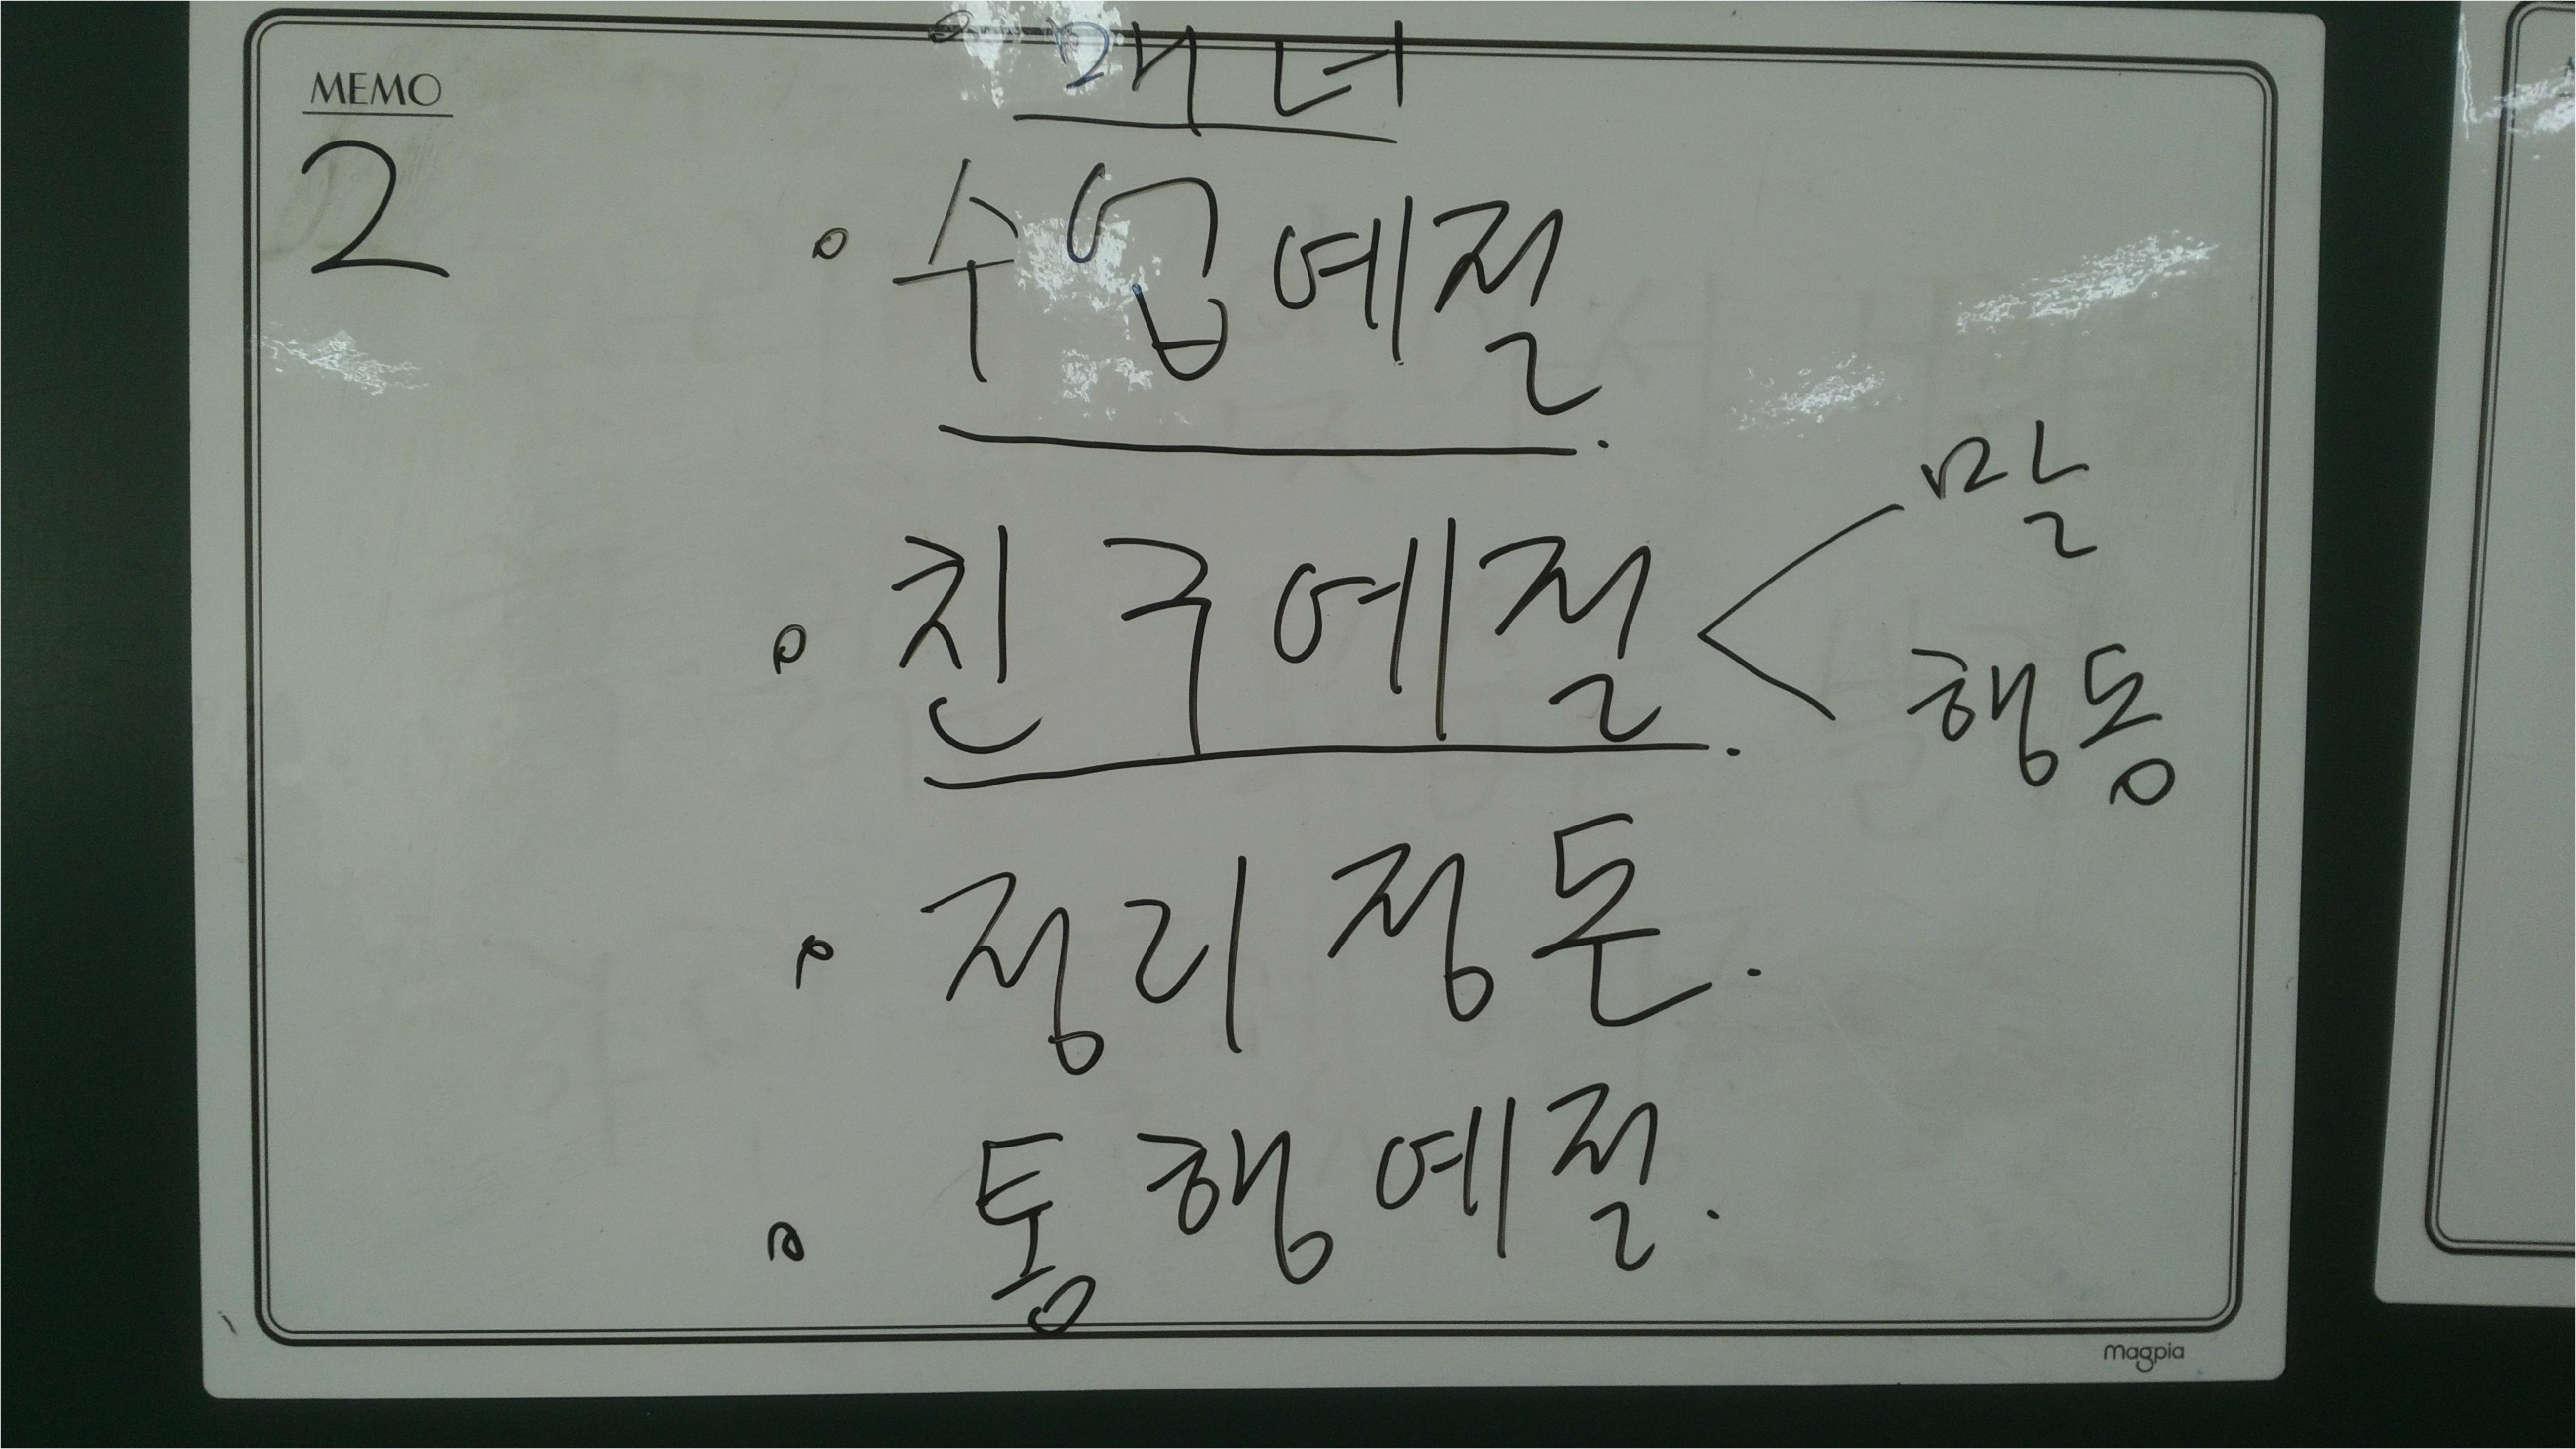 MEMO
2
◦ 매너
◦ 수업예절.
◦ 친구예절.
말
행동
◦ 정리정돈.
◦ 통행예절.
magpia